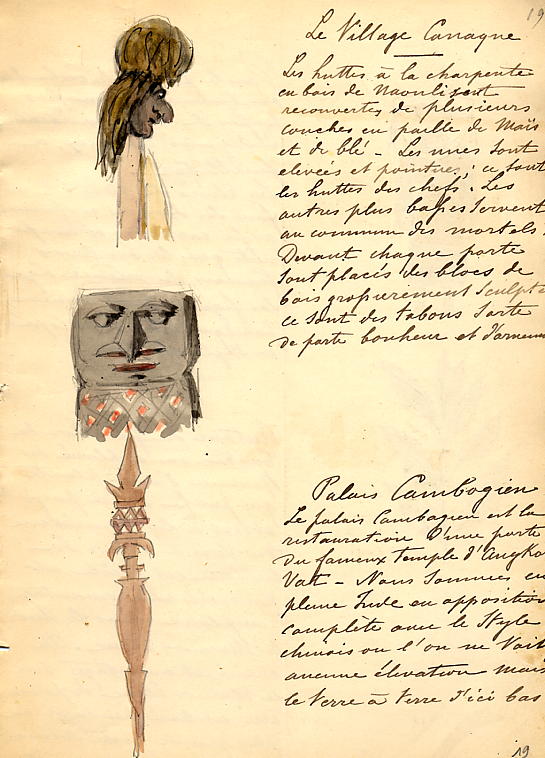 19
Le Village Canaque
Les huttes à la charpente
en bois de Naouli sont
recouvertes de plusieurs
couches en paille de Maïs
et de blé - Les unes sont
elevées et pointues; ce sont
les huttes des chefs. Les
autres plus basses servent
au commun des mortels.
Devant chaque porte
sont placés des blocs de
bois grossièrement sculpté
ce sont des tabous sorte
de porte bonheur et d'ornem
Palais Cambogien
Le palais Cambogien est la
restauration d'une porte
du fameux temple d'Angko
Vat - Nous sommes en
pleine Inde en opposition
complète avec le Style
chinois ou l'on ne Voit
aucune élévation mais
le terre à terre d'ici bas
19